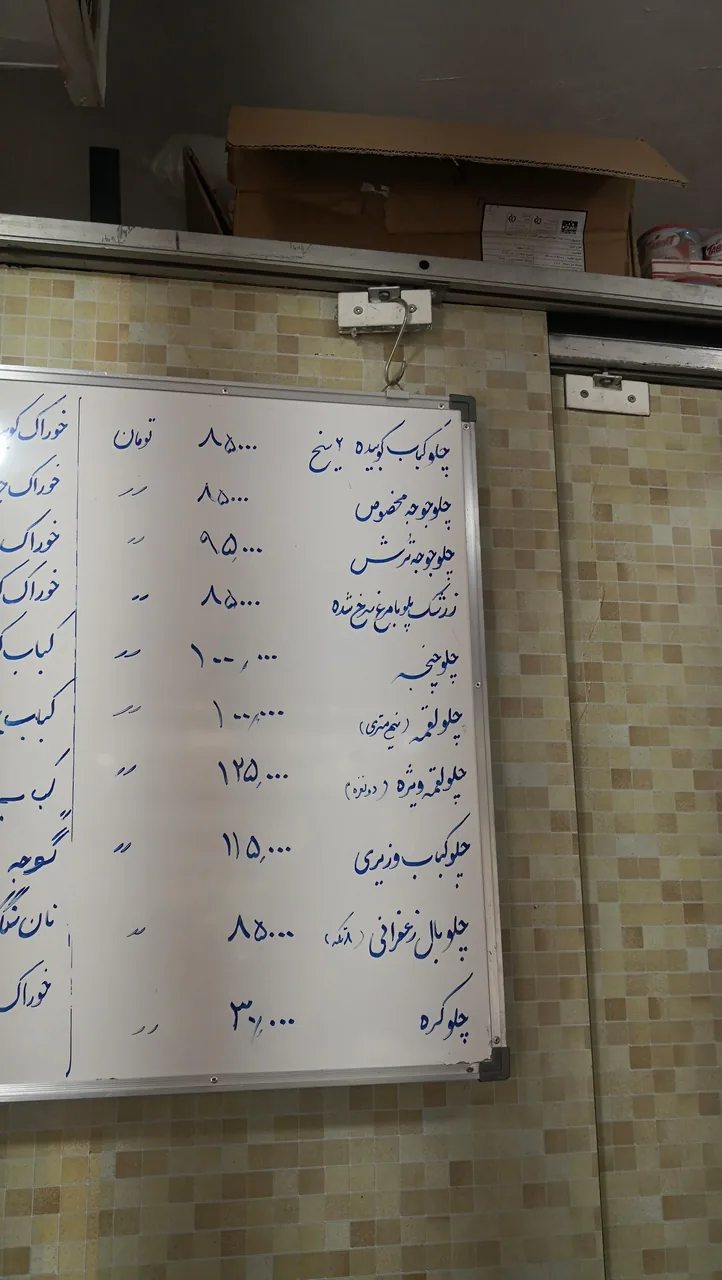 چلوکباب کوبیده ۲ سیخ ۸۵۰۰۰ تومان
چلوجوجه مخصوص ۸۵۰۰۰ 〃
چلوجوجه ترش ۹۵,۰۰۰ 〃
زرشک پلو با مرغ سرخ شده ۸۵۰۰۰ 〃
چلوچنجه ۱۰۰,۰۰۰ 〃
چلو لقمه (نیم متری) ۱۰۰,۰۰۰ 〃
چلو لقمه ویژه (دونفره) ۱۲۵,۰۰۰ 〃
چلوکباب وزیری ۱۱۵,۰۰۰ 〃
چلو بال زعفرانی (۸ تکه) ۸۵۰۰۰ 〃
چلو کره ۳۰,۰۰۰ 〃
خوراک
خوراک
خوراک
خوراک
کباب
کباب
گوجه
نان
خوراک